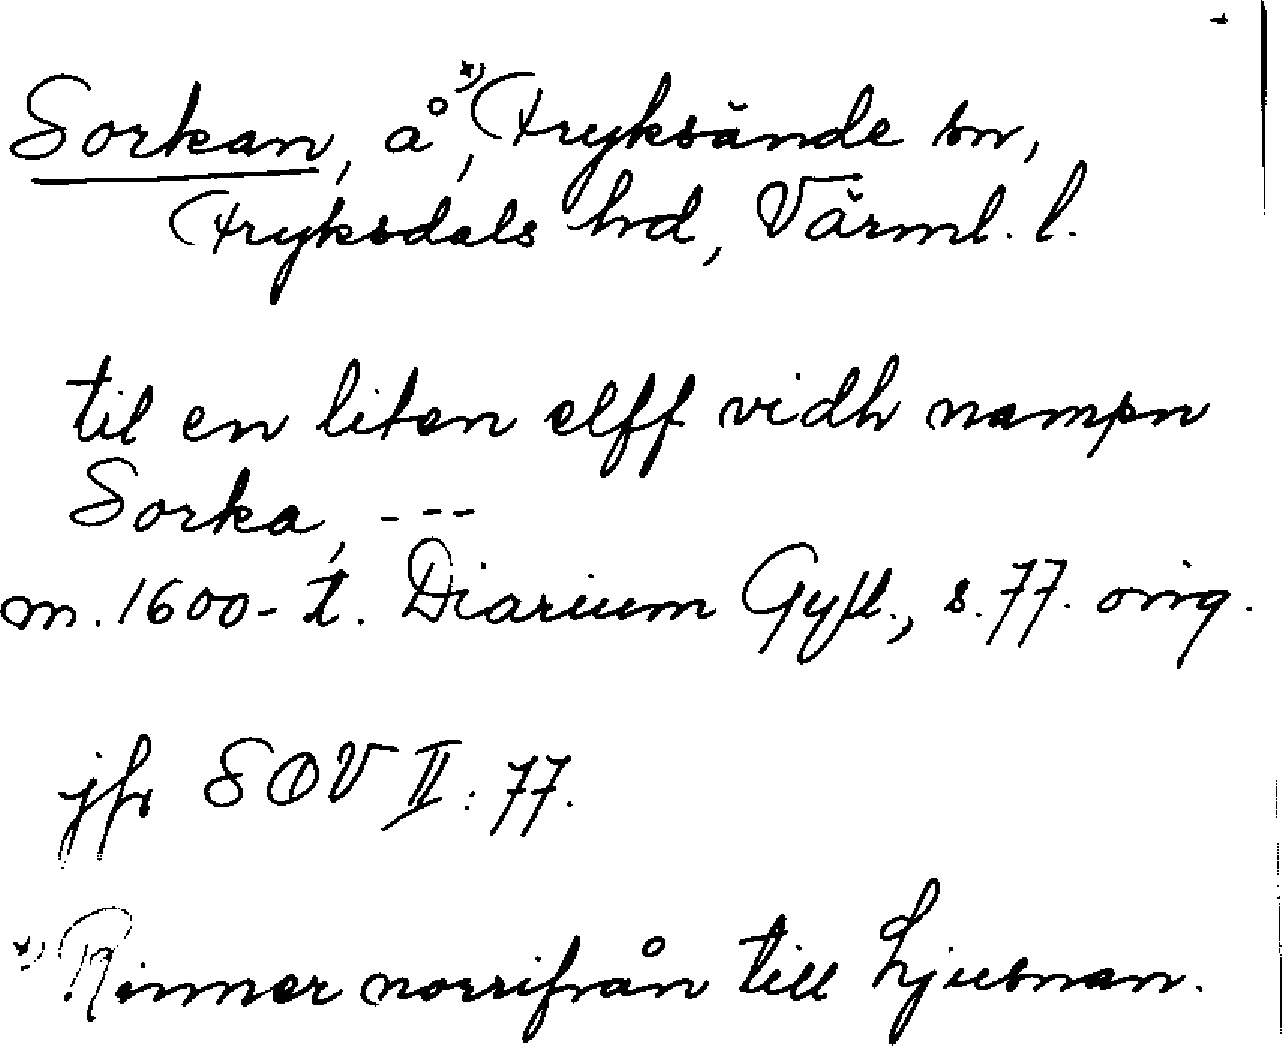 Sorkan, å*), Fryksände sn,
Fryksdals hd, Värml. l.
til en liten elff vidh nampn
Sorka, ---
m. 1600-t. Diarium Gyll., s. 77. orig.
jfr SOV II: 77.
*) Rinner norrifrån till Ljusnan.